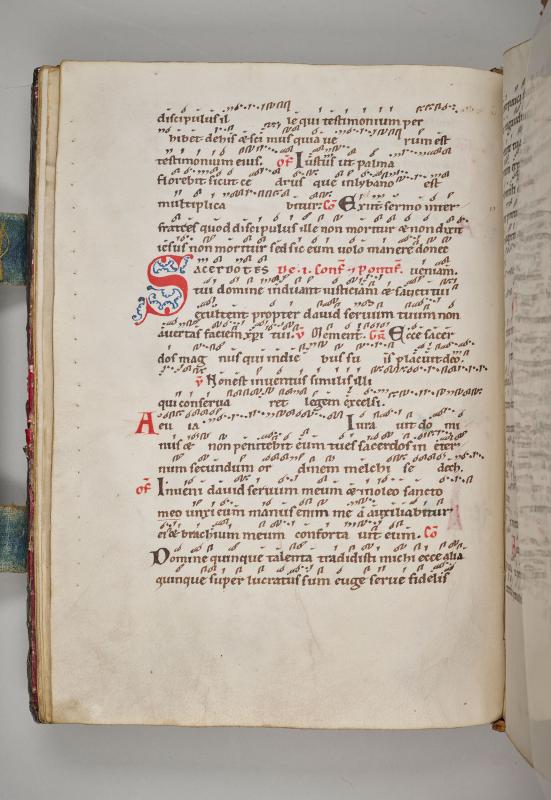 discipulus il le qui testimonium per
hibet dehis & sci mus quia ue rum est
testimonium eius. of Iustus ut palma
florebit sicut ce drus que inlybano est
multiplica bitur: Co Exiit sermo inter
fratres quod discipulus ille non moritur & non dixit
iesus non moritur sed sic eum uolo manere donec
SACERDOTES ueniam.
tui domine induant iusticiam & sancti tui
exultent propter dauid seruum tuum non
auertas faciem xpi tui. v Memento. Ecce sacer
dos mag nus qui indie bus su is placuit deo.
v Non est inuentus similis illi
qui conserua ret legem excelsi.
Aeu ia Iura uit do mi
nus & non penitebit eum tu es sacerdos in eter
num secundum or dinem melchi se dech.
of Inueni dauid seruum meum & in oleo sancto
meo unxi eum manus enim me a auxiliabitur
ei & brachium meum conforta uit eum. Co
Domine quinque talenta tradidisti michi ecce alia
quinque super lucratus sum euge serue fidelis